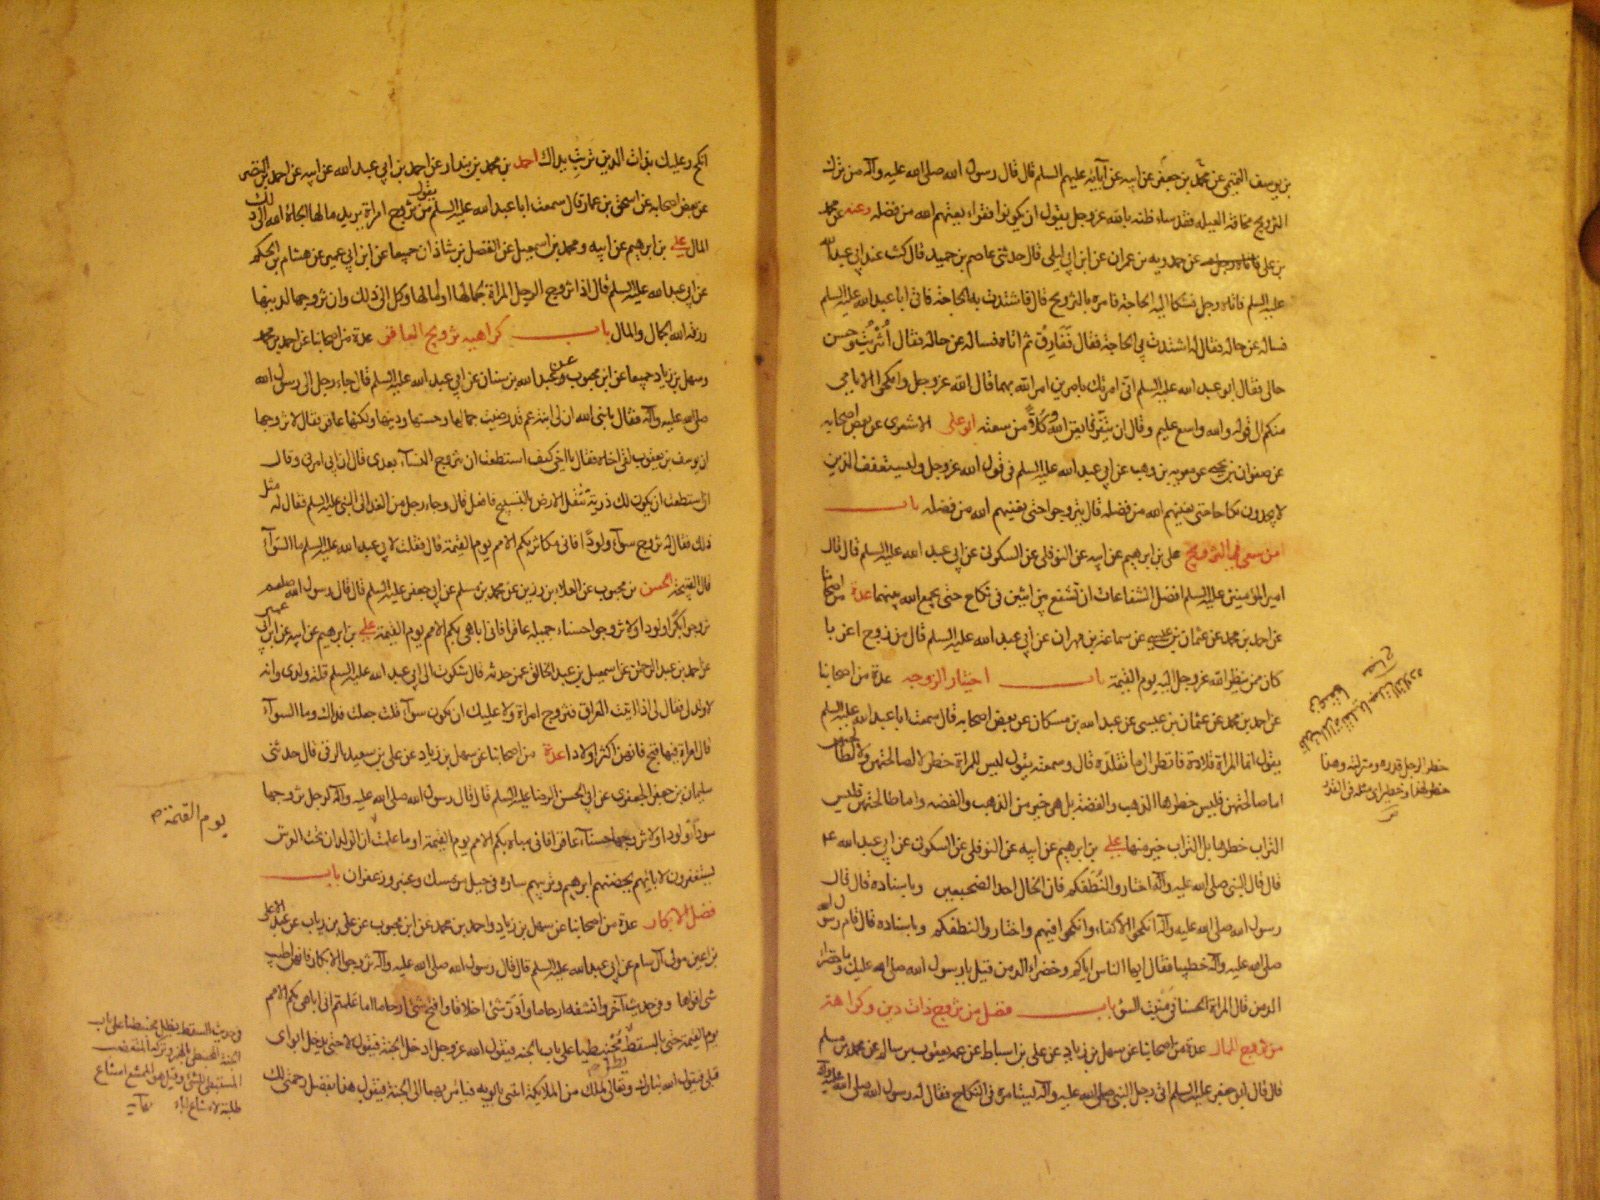 بن يوسف التميمي عن محمد بن جعفر عن ابيه عن آبائه عليهم السلم قال قال رسول الله صلى الله عليه وآله من ترك
التزويج مخافة العيلة فقد ساء ظنه بالله عز وجل يقول ان يكونوا فقراء يغنهم الله من فضله وعنه عن محمد
بن علي عن حمدويه بن عمران عن ابن ابي ليلى قال حدثني عاصم بن حميد قال كنت عند ابي عبد الله
عليه السلم فاتاه رجل فشكا اليه الحاجة فامره بالتزويج قال فاشتدت به الحاجة فاتى ابا عبد الله عليه السلم
فساله عن حاله فقال له اشتدت بي الحاجة فقال ففارق ثم اتاه فساله عن حاله فقال اثريت وحسن
حالي فقال ابو عبد الله عليه السلم اني امرتك بامرين امر الله بهما قال الله عز وجل وانكحوا الايامى
منكم الى قوله والله واسع عليم وقال ان يتفرقا يغن الله كلا من سعته ابو علي الاشعري عن بعض اصحابه
عن صفوان بن يحيى عن معوية بن وهب عن ابي عبد الله عليه السلم في قول الله عز وجل وليستعفف الذين
لا يجدون نكاحا حتى يغنيهم الله من فضله قال يتزوجوا حتى يغنيهم الله من فضله باب
من سعى في التزويج علي بن ابرهيم عن ابيه عن النوفلي عن السكوني عن ابي عبد الله عليه السلم قال قال
امير المؤمنين عليه السلم افضل الشفاعات ان تشفع بين اثنين في نكاح حتى يجمع الله بينهما عدة من اصحابنا
عن احمد بن محمد عن عثمان بن عيسى عن سماعة بن مهران عن ابي عبد الله عليه السلم قال من زوج اعزبا
كان ممن ينظر الله عز وجل اليه يوم القيمة باب اختيار الزوجه عدة من اصحابنا
عن احمد بن محمد عن عثمان بن عيسى عن عبد الله بن مسكان عن بعض اصحابه قال سمعت ابا عبد الله عليه السلم
يقول انما المراة قلادة فانظر الى ما تقلده قال وسمعته يقول ليس للمراة خطر لا لصالحتهن ولا لطالحتهن
اما صالحتهن فليس خطرها الذهب والفضة بل هي خير من الذهب والفضه واما طالحتهن فليس
التراب خطرها بل التراب خير منها علي بن ابرهيم عن ابيه عن النوفلي عن السكوني عن ابي عبد الله ع
قال قال النبي صلى الله عليه وآله اختاروا لنطفكم فان الخال احد الضجيعين وباسناده قال قال
رسول الله صلى الله عليه وآله انكحوا الاكفاء وانكحوا فيهم واختاروا لنطفكم وباسناده قال قام رسول الله
صلى الله عليه وآله خطيبا فقال ايها الناس اياكم وخضراء الدمن قيل يا رسول الله صلى الله عليك وما خضراء
الدمن قال المراة الحسناء في منبت السوء باب فضل من تزوج ذات دين وكراهة
من تزوج للمال عدة من اصحابنا عن سهل بن زياد عن علي بن اسباط عن عمه يعقوب بن سالم عن محمد بن مسلم
قال قال ابو جعفر عليه السلم اتى رجل النبي صلى الله عليه وآله يستامره في النكاح فقال له رسول الله صلى الله عليه وآله
خطر الرجل قدره ومنزلته وهذا
خطر لهذا وخطير اي مثله في القدر
انكح وعليك بذات الدين تربت يداك احمد بن محمد بن بندار عن احمد بن ابي عبد الله عن ابيه عن احمد بن النضر
عن بعض اصحابه عن اسحق بن عمار قال سمعت ابا عبد الله عليه السلم يقول من تزوج امراة يريد مالها الجاه الله الى ذلك
المال علي بن ابرهيم عن ابيه ومحمد بن اسمعيل عن الفضل بن شاذان جميعا عن ابن ابي عمير عن هشام بن الحكم
عن ابي عبد الله عليه السلم قال اذا تزوج الرجل المراة لجمالها او لمالها وكل الى ذلك وان تزوجها لدينها
رزقه الله الجمال والمال باب كراهية تزويج العاقر عدة من اصحابنا عن احمد بن محمد
وسهل بن زياد جميعا عن ابن محبوب عن عبد الله بن سنان عن ابي عبد الله عليه السلم قال جاء رجل الى رسول الله
صلى الله عليه وآله فقال يا نبي الله ان لي ابنة عم قد رضيت جمالها وحسنها ودينها ولكنها عاقر فقال لا تزوجها
ان يوسف بن يعقوب لقي اخاه فقال يا اخي كيف استطعت ان تزوج النساء بعدي قال ان ابي امرني وقال
ان استطعت ان يكون لك ذرية تثقل الارض بالتسبيح فافعل قال وجاء رجل من الغد الى النبي عليه السلم فقال له مثل
ذلك فقال له تزوج سوآء ولودا فاني مكاثر بكم الامم يوم القيمة قال فقلت لابي عبد الله عليه السلم ما السوآء
قال القبيحة الحسن بن محبوب عن العلاء بن رزين عن محمد بن مسلم عن ابي جعفر عليه السلم قال قال رسول الله صلعم
تزوجوا بكرا ولودا ولا تزوجوا حسناء جميلة عاقرا فاني اباهي بكم الامم يوم القيمة علي بن ابرهيم عن ابيه عن ابن ابي عمير
عن احمد بن عبد الرحمن عن اسمعيل بن عبد الخالق عمن حدثه قال شكوت الى ابي عبد الله عليه السلم قلة ولدي وانه
لا ولد لي فقال لي اذا اتيت العراق فتزوج امراة ولا عليك ان تكون سوآء قلت جعلت فداك وما السوآء
قال امراة فيها قبح فانهن اكثر اولادا عدة من اصحابنا عن سهل بن زياد عن علي بن سعيد الرقي قال حدثني
سليمان بن جعفر الجعفري عن ابي الحسن الرضا عليه السلم قال قال رسول الله صلى الله عليه وآله لرجل تزوجها
سوداء ولودا ولا تزوجها حسناء عاقرا فاني مباه بكم الامم يوم القيمة اوما علمت ان الولدان تحت العرش
يستغفرون لابائهم يحضنهم ابرهيم وتربيهم ساره في جبل من مسك وعنبر وزعفران باب
فضل الابكار عدة من اصحابنا عن سهل بن زياد واحمد بن محمد عن ابن محبوب عن علي بن رياب عن عبد الاعلى
بن اعين مولى آل سام عن ابي عبد الله عليه السلم قال قال رسول الله صلى الله عليه وآله تزوجوا الابكار فانهن اطيب
شي افواها وفي حديث آخر وانشفه ارحاما وادر شئ اخلافا وافتح شئ ارحاما اما علمتم اني اباهي بكم الامم
يوم القيمة حتى بالسقط يظل محبنطيا على باب الجنة فيقول الله عز وجل ادخل الجنة فيقول لا حتى يدخل ابواي
قبلي فيقول الله تبارك وتعالى لملك من الملايكة ائتني بابويه فيامر بهما الى الجنة فيقول هذا بفضل رحمتي لك
يوم القيمة
وحديث السقط يظل محبنطيا على باب
الجنة